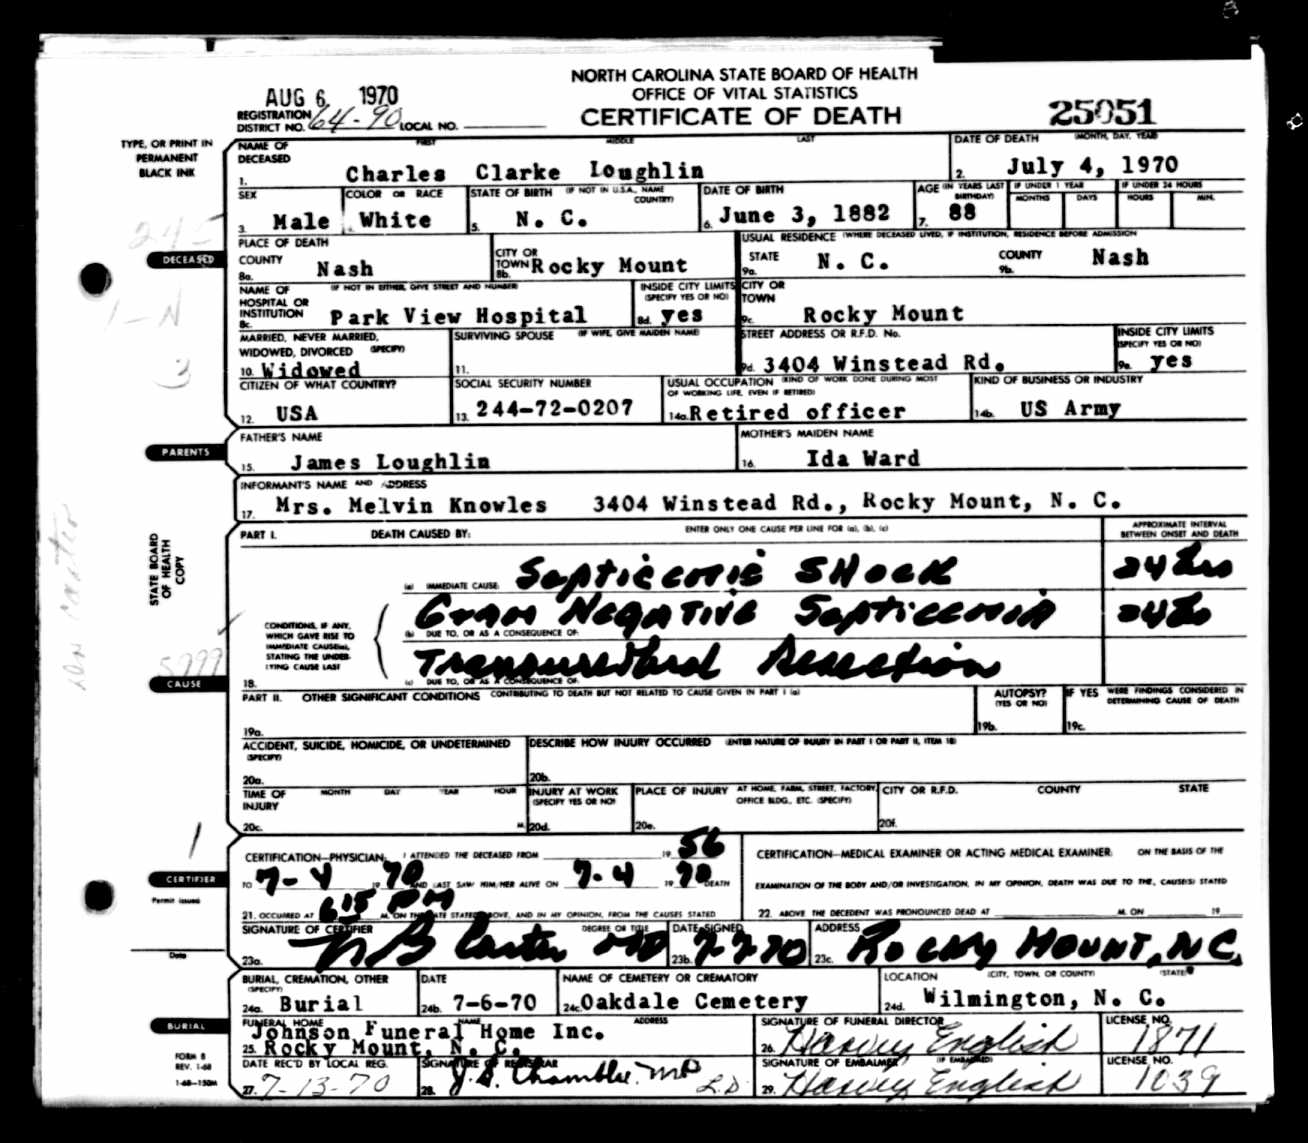 NORTH CAROLINA STATE BOARD OF HEALTH
OFFICE OF VITAL STATISTICS
CERTIFICATE OF DEATH
AUG 6 1970
25051
REGISTRATION DISTRICT NO. 64-90 LOCAL NO.
TYPE, OR PRINT IN PERMANENT BLACK INK
NAME OF DECEASED FIRST MIDDLE LAST DATE OF DEATH (MONTH, DAY, YEAR)
1. Charles Clarke Loughlin 2. July 4, 1970
SEX COLOR OR RACE STATE OF BIRTH (IF NOT IN U.S.A., NAME COUNTRY) DATE OF BIRTH AGE (IN YEARS LAST BIRTHDAY) IF UNDER 1 YEAR MONTHS DAYS IF UNDER 24 HOURS HOURS MIN.
3. Male 4. White 5. N. C. 6. June 3, 1882 7. 88
DECEASED
PLACE OF DEATH COUNTY CITY OR TOWN USUAL RESIDENCE (WHERE DECEASED LIVED, IF INSTITUTION, RESIDENCE BEFORE ADMISSION
8a. Nash 8b. Rocky Mount STATE 9a. N. C. COUNTY 9b. Nash
NAME OF HOSPITAL OR INSTITUTION (IF NOT IN EITHER, GIVE STREET AND NUMBER) INSIDE CITY LIMITS (SPECIFY YES OR NO) CITY OR TOWN
8c. Park View Hospital 8d. yes 9c. Rocky Mount
1-N
3
MARRIED, NEVER MARRIED, WIDOWED, DIVORCED (SPECIFY) SURVIVING SPOUSE (IF WIFE, GIVE MAIDEN NAME) STREET ADDRESS OR R.F.D. No. INSIDE CITY LIMITS (SPECIFY YES OR NO)
10. Widowed 11. 9d. 3404 Winstead Rd. 9e. yes
CITIZEN OF WHAT COUNTRY? SOCIAL SECURITY NUMBER USUAL OCCUPATION (KIND OF WORK DONE DURING MOST OF WORKING LIFE, EVEN IF RETIRED) KIND OF BUSINESS OR INDUSTRY
12. USA 13. 244-72-0207 14a. Retired officer 14b. US Army
PARENTS
FATHER'S NAME MOTHER'S MAIDEN NAME
15. James Loughlin 16. Ida Ward
INFORMANT'S NAME AND ADDRESS
17. Mrs. Melvin Knowles 3404 Winstead Rd., Rocky Mount, N. C.
STATE BOARD OF HEALTH COPY
PART I. DEATH CAUSED BY: ENTER ONLY ONE CAUSE PER LINE FOR (a), (b), (c) APPROXIMATE INTERVAL BETWEEN ONSET AND DEATH
(a) IMMEDIATE CAUSE: Septicemic SHock 24 hrs
Gram Negative Septicemia 24 h
CONDITIONS, IF ANY, WHICH GAVE RISE TO IMMEDIATE CAUSE(a), STATING THE UNDERLYING CAUSE LAST
(b) DUE TO, OR AS A CONSEQUENCE OF:
Transurethral Resection
(c) DUE TO, OR AS A CONSEQUENCE OF:
CAUSE
18.
PART II. OTHER SIGNIFICANT CONDITIONS CONTRIBUTING TO DEATH BUT NOT RELATED TO CAUSE GIVEN IN PART I (a) AUTOPSY? (YES OR NO) IF YES WERE FINDINGS CONSIDERED IN DETERMINING CAUSE OF DEATH
19a. 19b. 19c.
ACCIDENT, SUICIDE, HOMICIDE, OR UNDETERMINED (SPECIFY) DESCRIBE HOW INJURY OCCURRED (ENTER NATURE OF INJURY IN PART I OR PART II, ITEM 18)
20a. 20b.
TIME OF INJURY MONTH DAY YEAR HOUR INJURY AT WORK (SPECIFY YES OR NO) PLACE OF INJURY AT HOME, FARM, STREET, FACTORY, OFFICE BLDG., ETC. (SPECIFY) CITY OR R.F.D. COUNTY STATE
20c. M. 20d. 20e. 20f.
CERTIFIER
Permit issued
Date
CERTIFICATION—PHYSICIAN: I ATTENDED THE DECEASED FROM 19 56 CERTIFICATION—MEDICAL EXAMINER OR ACTING MEDICAL EXAMINER: ON THE BASIS OF THE
TO 7-4 19 70 AND LAST SAW HIM/HER ALIVE ON 7-4 19 70 DEATH EXAMINATION OF THE BODY AND/OR INVESTIGATION, IN MY OPINION, DEATH WAS DUE TO THE, CAUSE(S) STATED
21. OCCURRED AT 6:15 PM M. ON THE DATE STATED ABOVE, AND IN MY OPINION, FROM THE CAUSES STATED 22. ABOVE THE DECEDENT WAS PRONOUNCED DEAD AT M. ON 19
SIGNATURE OF CERTIFIER DEGREE OR TITLE DATE SIGNED ADDRESS
23a. N B Carter MD 23b. 7 7 70 23c. Rocky Mount, N.C.
BURIAL, CREMATION, OTHER (SPECIFY) DATE NAME OF CEMETERY OR CREMATORY LOCATION (CITY, TOWN, OR COUNTY) (STATE)
24a. Burial 24b. 7-6-70 24c. Oakdale Cemetery 24d. Wilmington, N. C.
BURIAL
FUNERAL HOME NAME ADDRESS SIGNATURE OF FUNERAL DIRECTOR LICENSE NO.
Johnson Funeral Home Inc.
25. Rocky Mount, N. C. 26. Harvey English 1871
FORM 8
REV. 1-68
1-68—150M
DATE REC'D BY LOCAL REG. SIGNATURE OF REGISTRAR SIGNATURE OF EMBALMER (IF EMBALMED) LICENSE NO.
27. 7-13-70 28. J. S. Chamblee. MD L.D. 29. Harvey English 1039